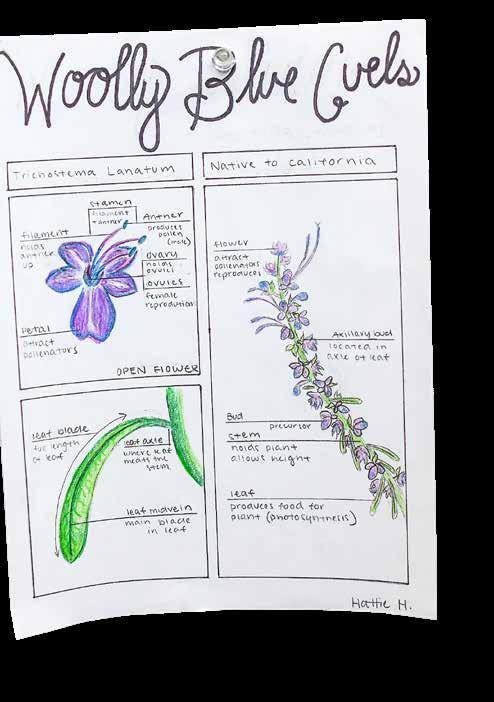 Woolly Blue Curls
Trichostema Lanatum
Native to California
stamen
filament
+ antner
Antner
produces
pollen
(male)
filament
holds
antner
up
ovary
holds
ovules
ovules
female
reprodution
petal
attract
pollenators
OPEN FLOWER
leaf blade
full length
of leaf
leaf axle
where leaf
meats the
stem
leaf midvein
main blade
in leaf
flower
attract
pollenators
reproduces
Axillary bud
located in
axle of leaf
Bud
precursor
stem
holds plant
allows height
leaf
produces food for
plant (photosyntesis)
Hattie H.